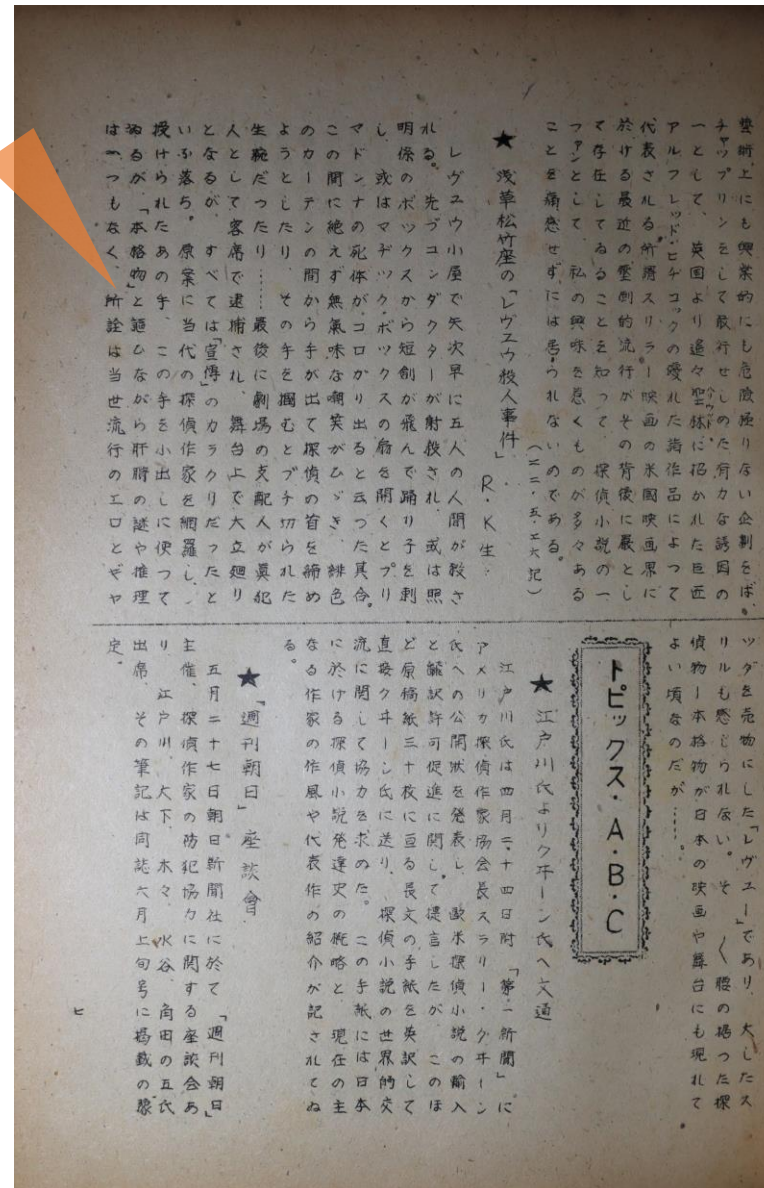 藝術上にも興業的にも危險極りない企劃をば、
チャップリンをして敢行せしめた有力な誘因の
一として、英国より遙々聖林に招かれた巨匠
ハリウッド
アルフレッド・ヒチコックの優れた諸作品によつて
代表される所謂スリラー映画の米國映画界に
於ける最近の壓倒的流行がその背後に嚴とし
て存在してゐることを知つて、探偵小説の一
ファンとして、私の興味を惹くものが多々ある
ことを痛感せずには居られないのである。
(二二・五・二六記)
★ 浅草松竹座の「レヴユウ殺人事件」 R・K生
レヴユウ小屋で矢次早に五人の人間が殺さ
れる。先づコンダクターが射殺され、或は照
明係のボックスから短劍が飛んで踊り子を刺
し、或はマヂック・ボックスの扇を開くとプリ
マドンナの死体がコロがり出ると云つた具合。
この間に絶えず無氣味な嘲笑がひゞき、緋色
のカーテンの間から手が出て探偵の首を締め
ようとしたり、その手を掴むとブチ切られた
生腕だつたり……最後に劇場の支配人が眞犯
人として客席で逮捕され、舞台上で大立廻り
となるが、すべては「宣傳」のカラクリだつたと
いふ落ち。原案に当代の探偵作家を網羅し、
授けられたあの手、この手を小出しに使つて
ゐるが、「本格物」と謳ひながら肝腎の謎や推理
は一つもなく、所詮は当世流行のエロとデヤ
ツダを売物にした「レヴユー」であり、大したス
リルも感じられない。そろ〱腰の据つた探
偵物―本格物が日本の映画や舞台にも現れて
よい頃なのだが……。
トピックス・A・B・C
★ 江戸川氏よりクヰーン氏へ文通
江戸川氏は四月二十四日附「第一新聞」に
アメリカ探偵作家協会長スラリー・クヰーン
氏への公開狀を発表し、歐米探偵小説の輸入
と飜訳許可促進に関して提言したが、このほ
ど原稿紙三十枚に亘る長文の手紙を英訳して
直接クヰーン氏に送り、探偵小説の世界的交
流に関して協力を求めた。この手紙には日本
に於ける探偵小説発達史の概略と、現在の主
なる作家の作風や代表作の紹介が記されてゐ
る。
★ 「週刊朝日」座談會
五月二十七日朝日新聞社に於て「週刊朝日」
主催、探偵作家の防犯協力に関する座談会あ
り、江戸川、大下、木々、水谷、角田の五氏
出席、その筆記は同誌六月上旬号に掲載の豫
定。
七